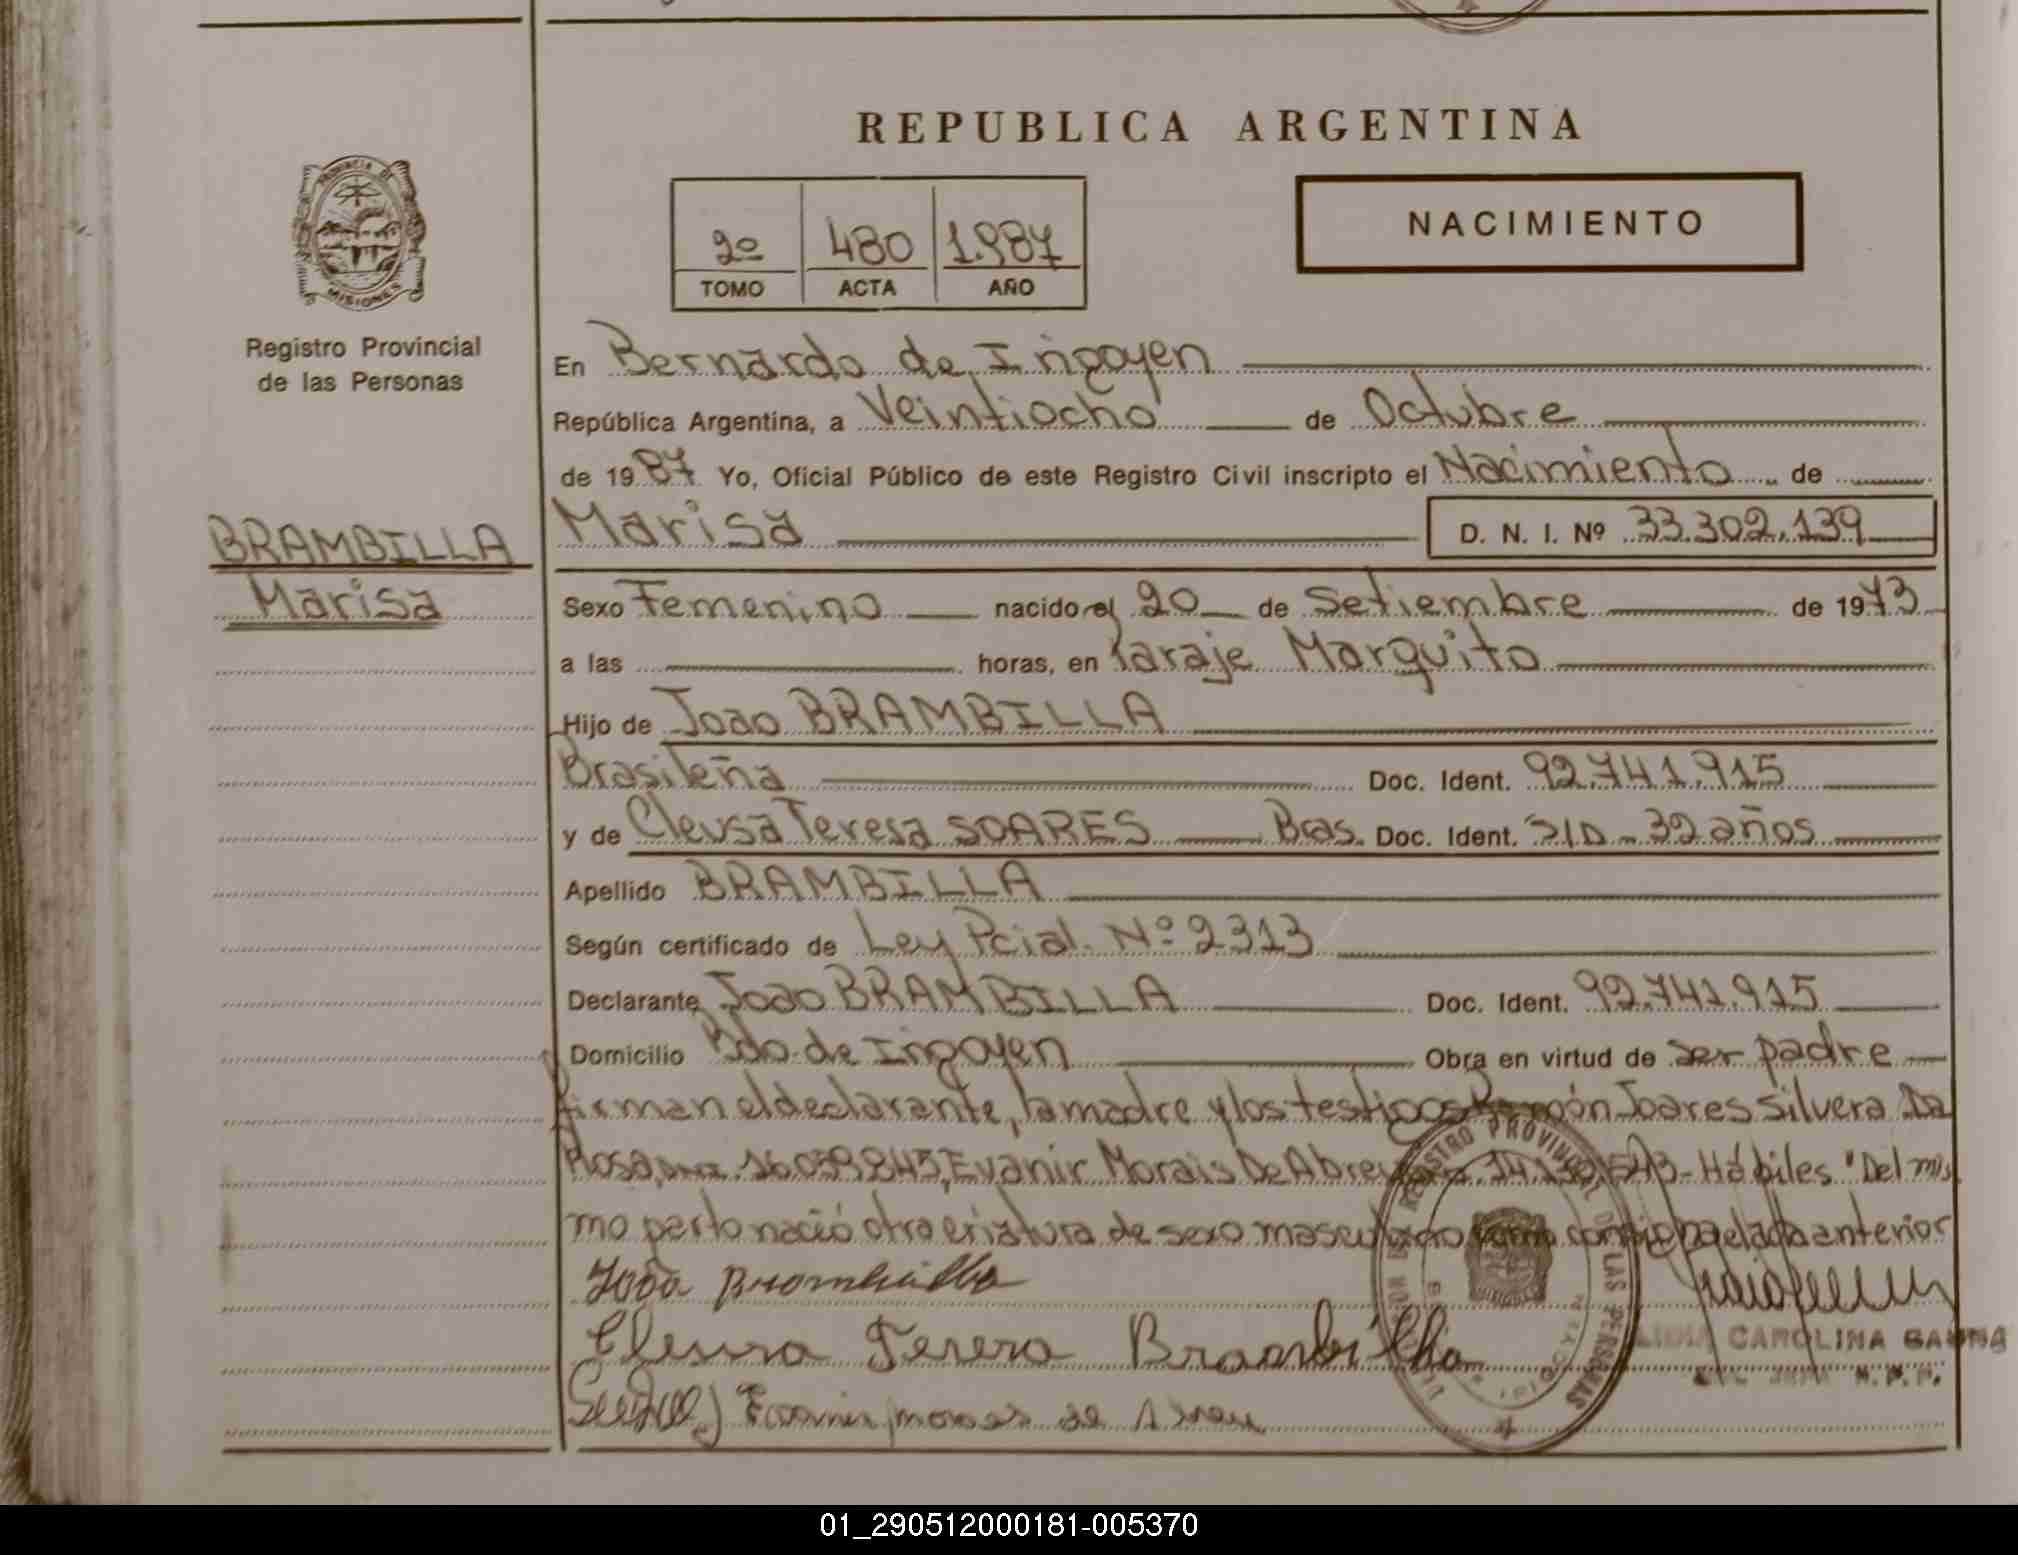 REPUBLICA ARGENTINA
PROVINCIA DE
MISIONES
Registro Provincial
de las Personas
2º 480 1.987
TOMO ACTA AÑO
NACIMIENTO
En Bernardo de Irigoyen
República Argentina, a Veintiocho de Octubre
de 1987 Yo, Oficial Público de este Registro Civil inscripto el Nacimiento de
BRAMBILLA
Marisa
Marisa D. N. I. Nº 33.302.139
Sexo Femenino nacido el 20 de Setiembre de 1973
a las horas, en Paraje Marquito
Hijo de Joao BRAMBILLA
Brasileña Doc. Ident. 92.741.915
y de Cleusa Teresa SOARES Bras. Doc. Ident. S/D - 32 años
Apellido BRAMBILLA
Según certificado de Ley Pcial. Nº 2313
Declarante Joao BRAMBILLA Doc. Ident. 92.741.915
Domicilio Bdo. de Irigoyen Obra en virtud de ser padre
firman el declarante, la madre y los testigos Joares Silvera Da
Rosa, 16.059.845, Evanir Morais De Abreu - Hábiles "Del mis
mo parto nació otra criatura de sexo masculino anterior
João Brambilla
Cleusa Teresa Brambilla
Evanir moraes de Abreu
REGISTRO PROVINCIAL DE LAS PERSONAS
LIDIA CAROLINA GAUNA
R.P.P.
01_290512000181-005370